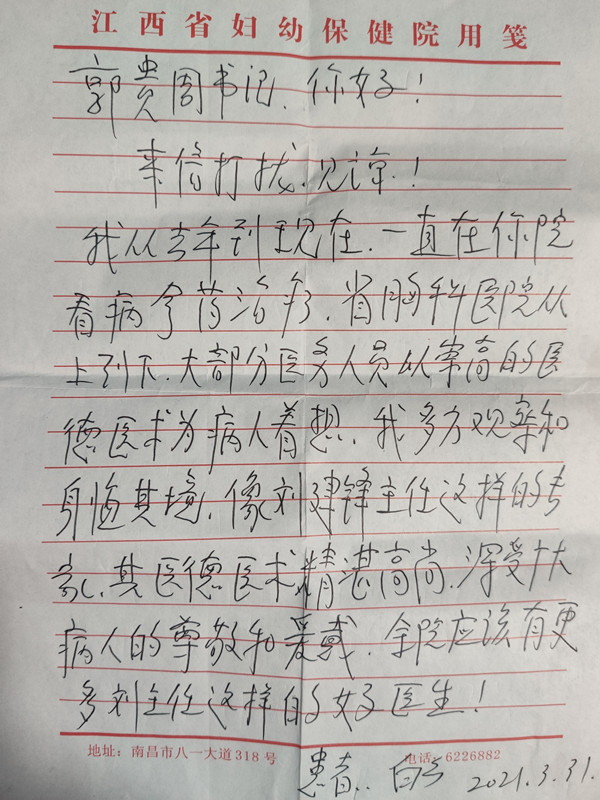 江西省妇幼保健院用笺
郭贵周书记、你好!
来信打扰、见谅!
我从去年到现在、一直在你院
看病拿药治疗、省胸科医院从
上到下、大部分医务人员从崇高的医
德医术为病人着想、我多方观察和
身临其境、像刘建锋主任这样的专
家、其医德医术精湛高尚、深受广大
病人的尊敬和爱戴、全院应该有更
多刘主任这样的好医生!
地址:南昌市八一大道318号 电话:6226882
患者:
2021.3.31.